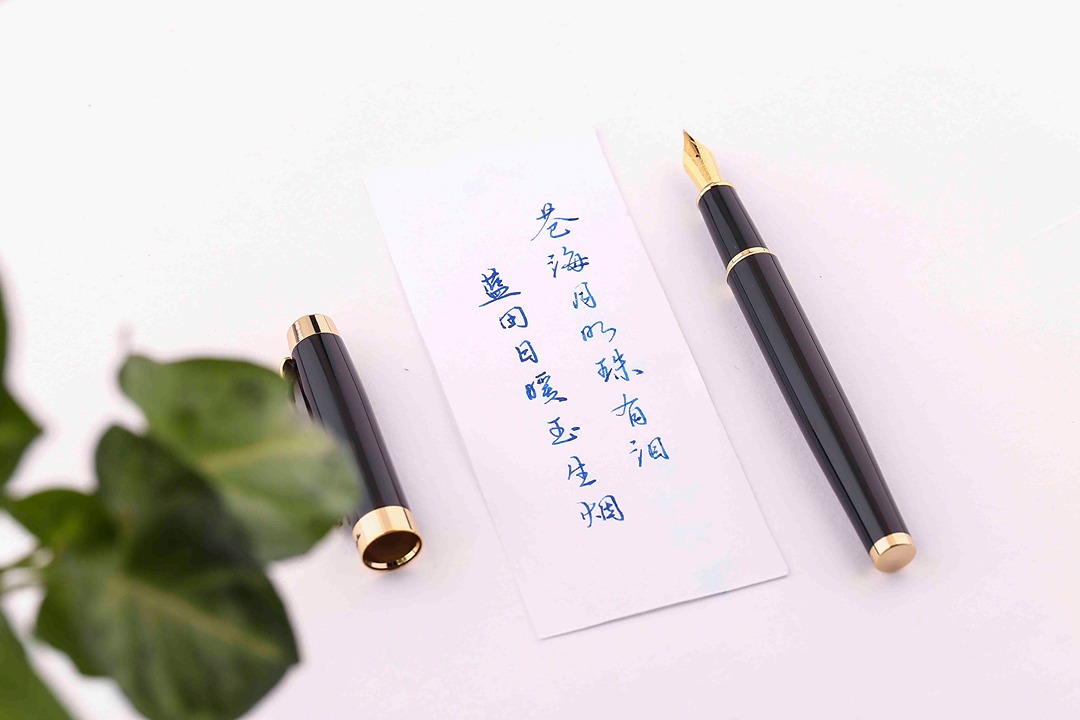 苍海月明珠有泪
蓝田日暖玉生烟